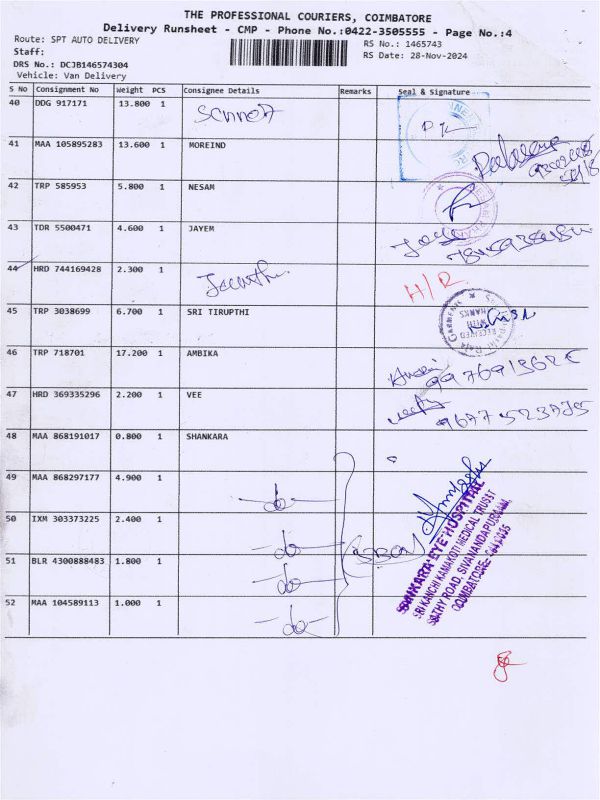 THE PROFESSIONAL COURIERS, COIMBATORE
Delivery Runsheet - CMP - Phone No.:0422-3505555 - Page No.:4
Route: SPT AUTO DELIVERY
RS No.: 1465743
Staff:
RS Date: 28-Nov-2024
DRS No.: DCJB146574304
Vehicle: Van Delivery
S No Consignment No Weight PCS Consignee Details Remarks Seal & Signature
40 DDG 917171 13.800 1
41 MAA 105895283 13.600 1 MOREIND
42 TRP 585953 5.800 1 NESAM
43 TDR 5500471 4.600 1 JAYEM
44 HRD 744169428 2.300 1 H/R
45 TRP 3038699 6.700 1 SRI TIRUPTHI
RECEIVED
WITH
THANKS
46 TRP 718701 17.200 1 AMBIKA
47 HRD 369335296 2.200 1 VEE
48 MAA 868191017 0.800 1 SHANKARA
49 MAA 868297177 4.900 1 -do-
50 IXM 303373225 2.400 1 -do-
51 BLR 4300888483 1.800 1 -do-
52 MAA 104589113 1.000 1 -do-
SANKARA EYE HOSPITAL
SRI KANCHI KAMAKOTI MEDICAL TRUST
SATHY ROAD, SIVANANDAPURAM,
COIMBATORE- 641035